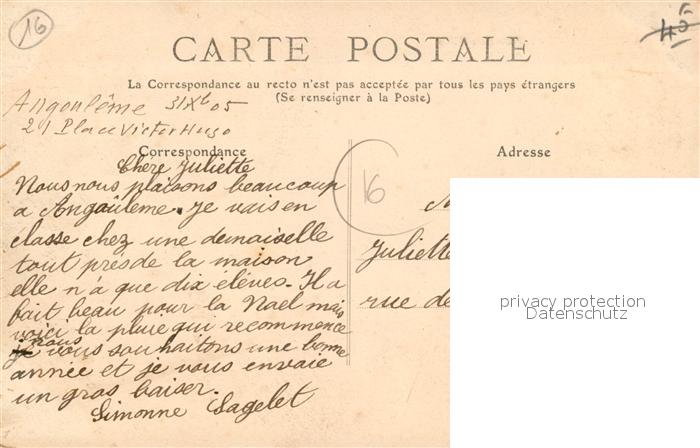 16
45
CARTE POSTALE
La Correspondance au recto n'est pas acceptée par tous les pays étrangers
(Se renseigner à la Poste)
Angoulême 31 Xbre 05
21 Place Victor Hugo
Correspondance
Adresse
Chère Juliette
Nous nous plaisons beaucoup
a Angoûleme. Je vais en
classe chez une demaiselle
tout près de la maison
elle n'a que dix élèves. Il a
fait beau pour la Nael mais
voici la pluie qui recommence
nous vous souhaitons une bonne
année et je vous envaie
un gros baiser.
Simonne Sagelet
16
Juliette
rue de
privacy protection
Datenschutz